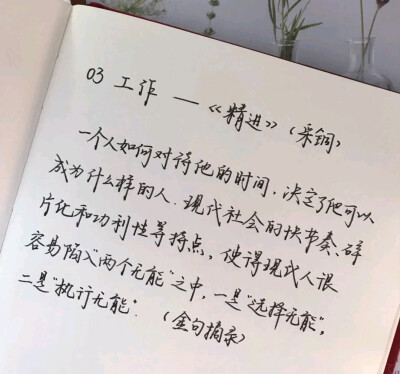 03 工作 — 《精进》（采铜）
一个人如何对待他的时间，决定了他可以
成为什么样的人．现代社会的快节奏、碎
片化和功利性等特点，使得现代人很
容易陷入“两个无能”之中，一是“选择无能”，
二是“执行无能”．（金句摘录）